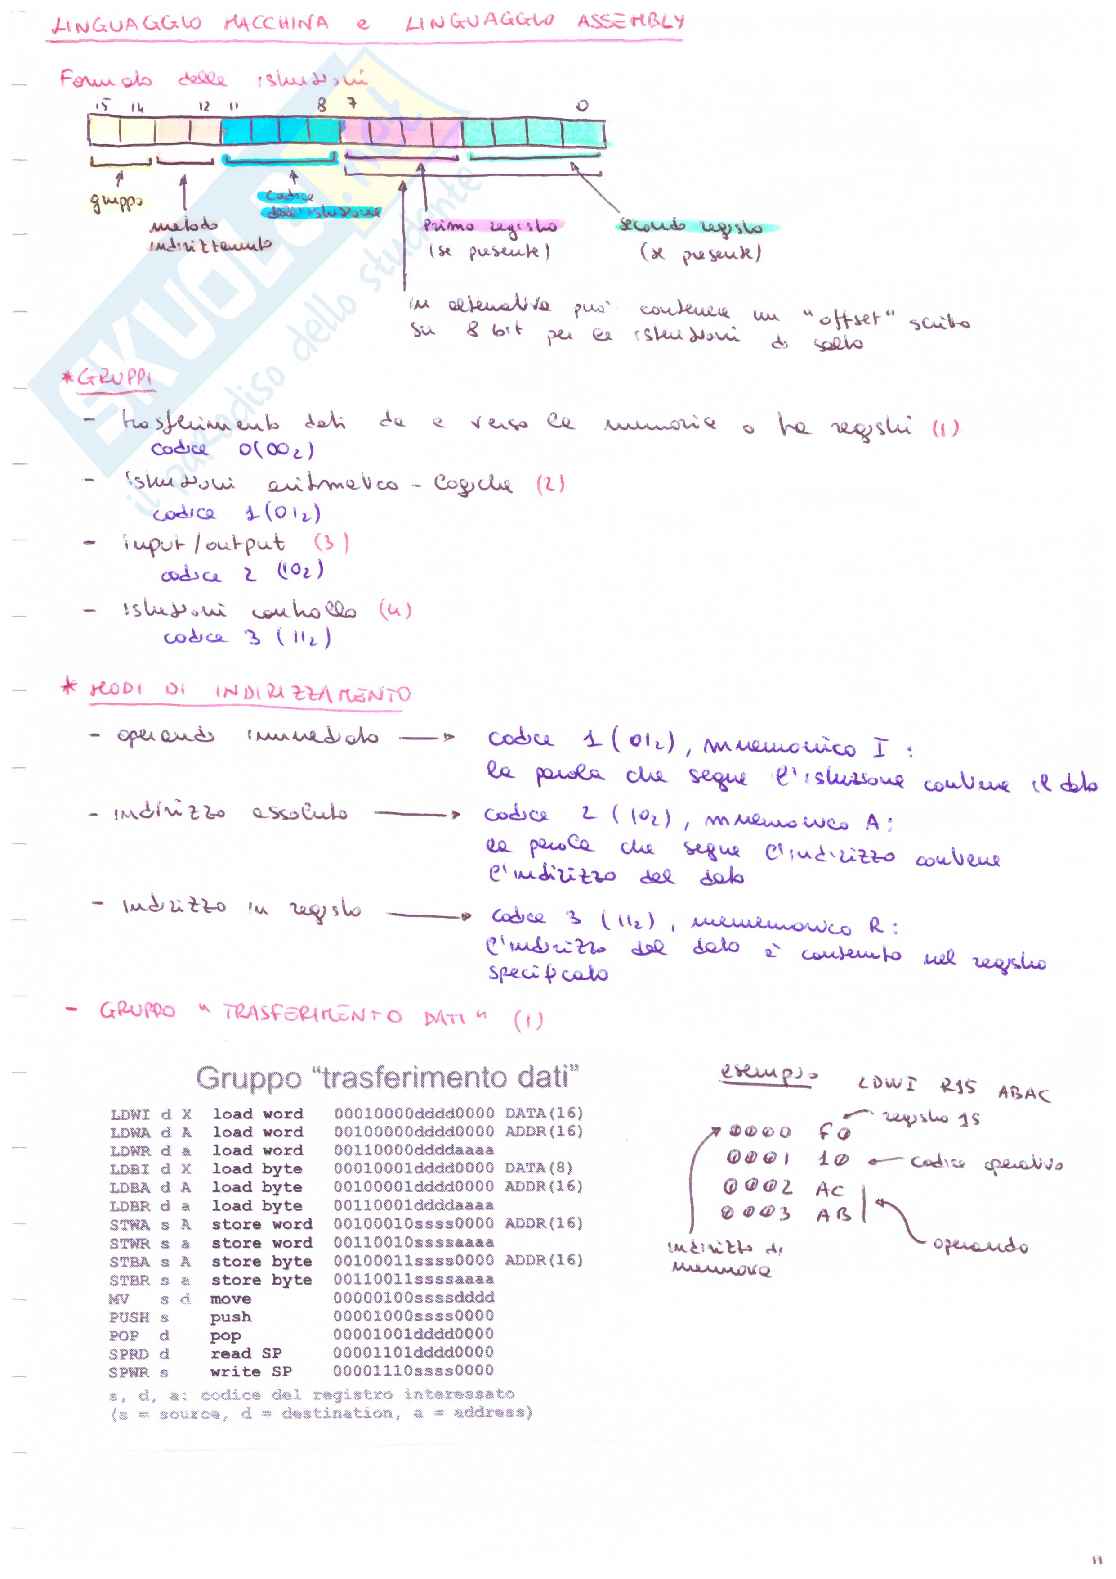 LINGUAGGIO MACCHINA e LINGUAGGIO ASSEMBLY
Formato delle istruzioni
15 14 12 11 8 7 0
gruppo
metodo
indirizzamento
codice
dell'istruzione
primo registro
(se presente)
secondo registro
(se presente)
in alternativa può contenere un "offset" scritto
su 8 bit per le istruzioni di salto
* GRUPPI
- trasferimento dati da e verso la memoria o tra registri (1)
codice 0 (00₂)
- istruzioni aritmetico-logiche (2)
codice 1 (01₂)
- input/output (3)
codice 2 (10₂)
- istruzioni controllo (4)
codice 3 (11₂)
* MODI DI INDIRIZZAMENTO
- operando immediato → codice 1 (01₂), mnemonico I:
la parola che segue l'istruzione contiene il dato
- indirizzo assoluto → codice 2 (10₂), mnemonico A:
la parola che segue l'indirizzo contiene
l'indirizzo del dato
- indirizzo in registro → codice 3 (11₂), mnemonico R:
l'indirizzo del dato è contenuto nel registro
specificato
- GRUPPO "TRASFERIMENTO DATI" (1)
Gruppo "trasferimento dati"
LDWI d X load word 00010000dddd0000 DATA(16)
LDWA d A load word 00100000dddd0000 ADDR(16)
LDWR d a load word 00110000ddddaaaa
LDBI d X load byte 00010001dddd0000 DATA(8)
LDBA d A load byte 00100001dddd0000 ADDR(16)
LDBR d a load byte 00110001ddddaaaa
STWA s A store word 00100010ssss0000 ADDR(16)
STWR s a store word 00110010ssssaaaa
STBA s A store byte 00100011ssss0000 ADDR(16)
STBR s a store byte 00110011ssssaaaa
MV s d move 00000100ssssdddd
PUSH s push 00001000ssss0000
POP d pop 00001001dddd0000
SPRD d read SP 00001101dddd0000
SPWR s write SP 00001110ssss0000
s, d, a: codice del registro interessato
(s = source, d = destination, a = address)
esempio LDWI R15 ABAC
registro 15
0000 F0
0001 10 ← codice operativo
0002 AC
0003 AB
operando
indirizzo di
memoria
SKUOLA.net
il paradiso dello studente
11